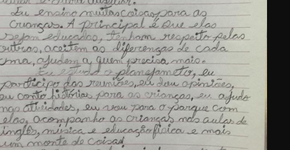 Eu ensino muitas coisas para as
crianças. A principal é que elas
sejam educadas, tenham respeito pelas
outras, aceitem as diferenças de cada
uma, ajudem a quem precisa mais.
Eu ajudo o planejamento, eu
participo das reuniões, eu dou opiniões,
eu conto histórias para as crianças, eu ajudo
nas atividades, eu vou para o parque com
elas, acompanho as crianças nas aulas de
inglês, música e educação física e mais
um monte de coisas